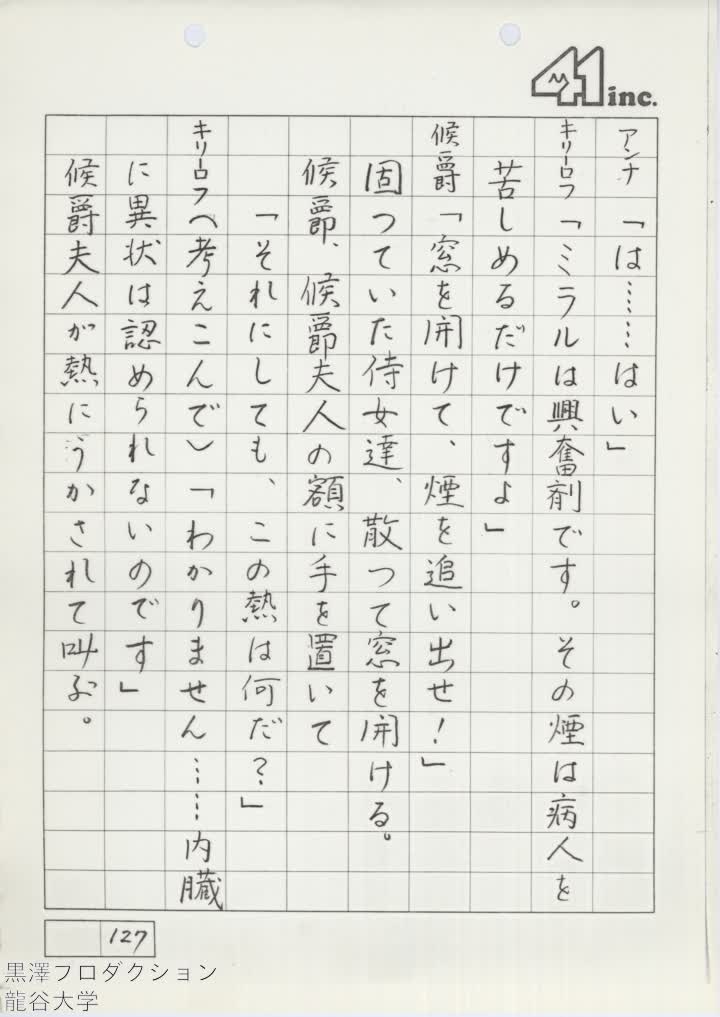 41 inc.
アンナ「は……はい」
キリーロフ「ミラルは興奮剤です。その煙は病人を
苦しめるだけですよ」
候爵「窓を開けて、煙を追い出せ！」
固つていた侍女達、散つて窓を開ける。
候爵、候爵夫人の額に手を置いて
「それにしても、この熱は何だ？」
キリーロフ（考えこんで）「わかりません……内臓
に異状は認められないのです」
候爵夫人が熱にうかされて叫ぶ。
127
黒澤フロダクション
龍谷大学